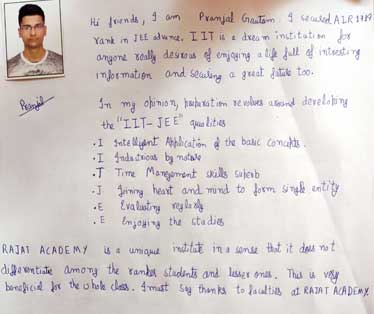 Hi friends, I am Pranjal Gautam. I secured AIR 1989
rank in JEE advance. IIT is a dream institution for
anyone really desirous of enjoying a life full of intresting
information and securing a great future too.
Pranjal
In my opinion, preparation revolves around developing
the "IIT-JEE" qualities
. I Intelligent Application of the basic concepts.
. I Industrious by nature
. T Time Management skills superb
. J Joining heart and mind to form single entity
. E Evaluating regularly
. E Enjoying the studies
RAJAT ACADEMY is a unique institute in a sense that it does not
differentiate among the ranker students and lesser ones. This is very
beneficial for the whole class. I must say thanks to faculties at RAJAT ACADEMY.